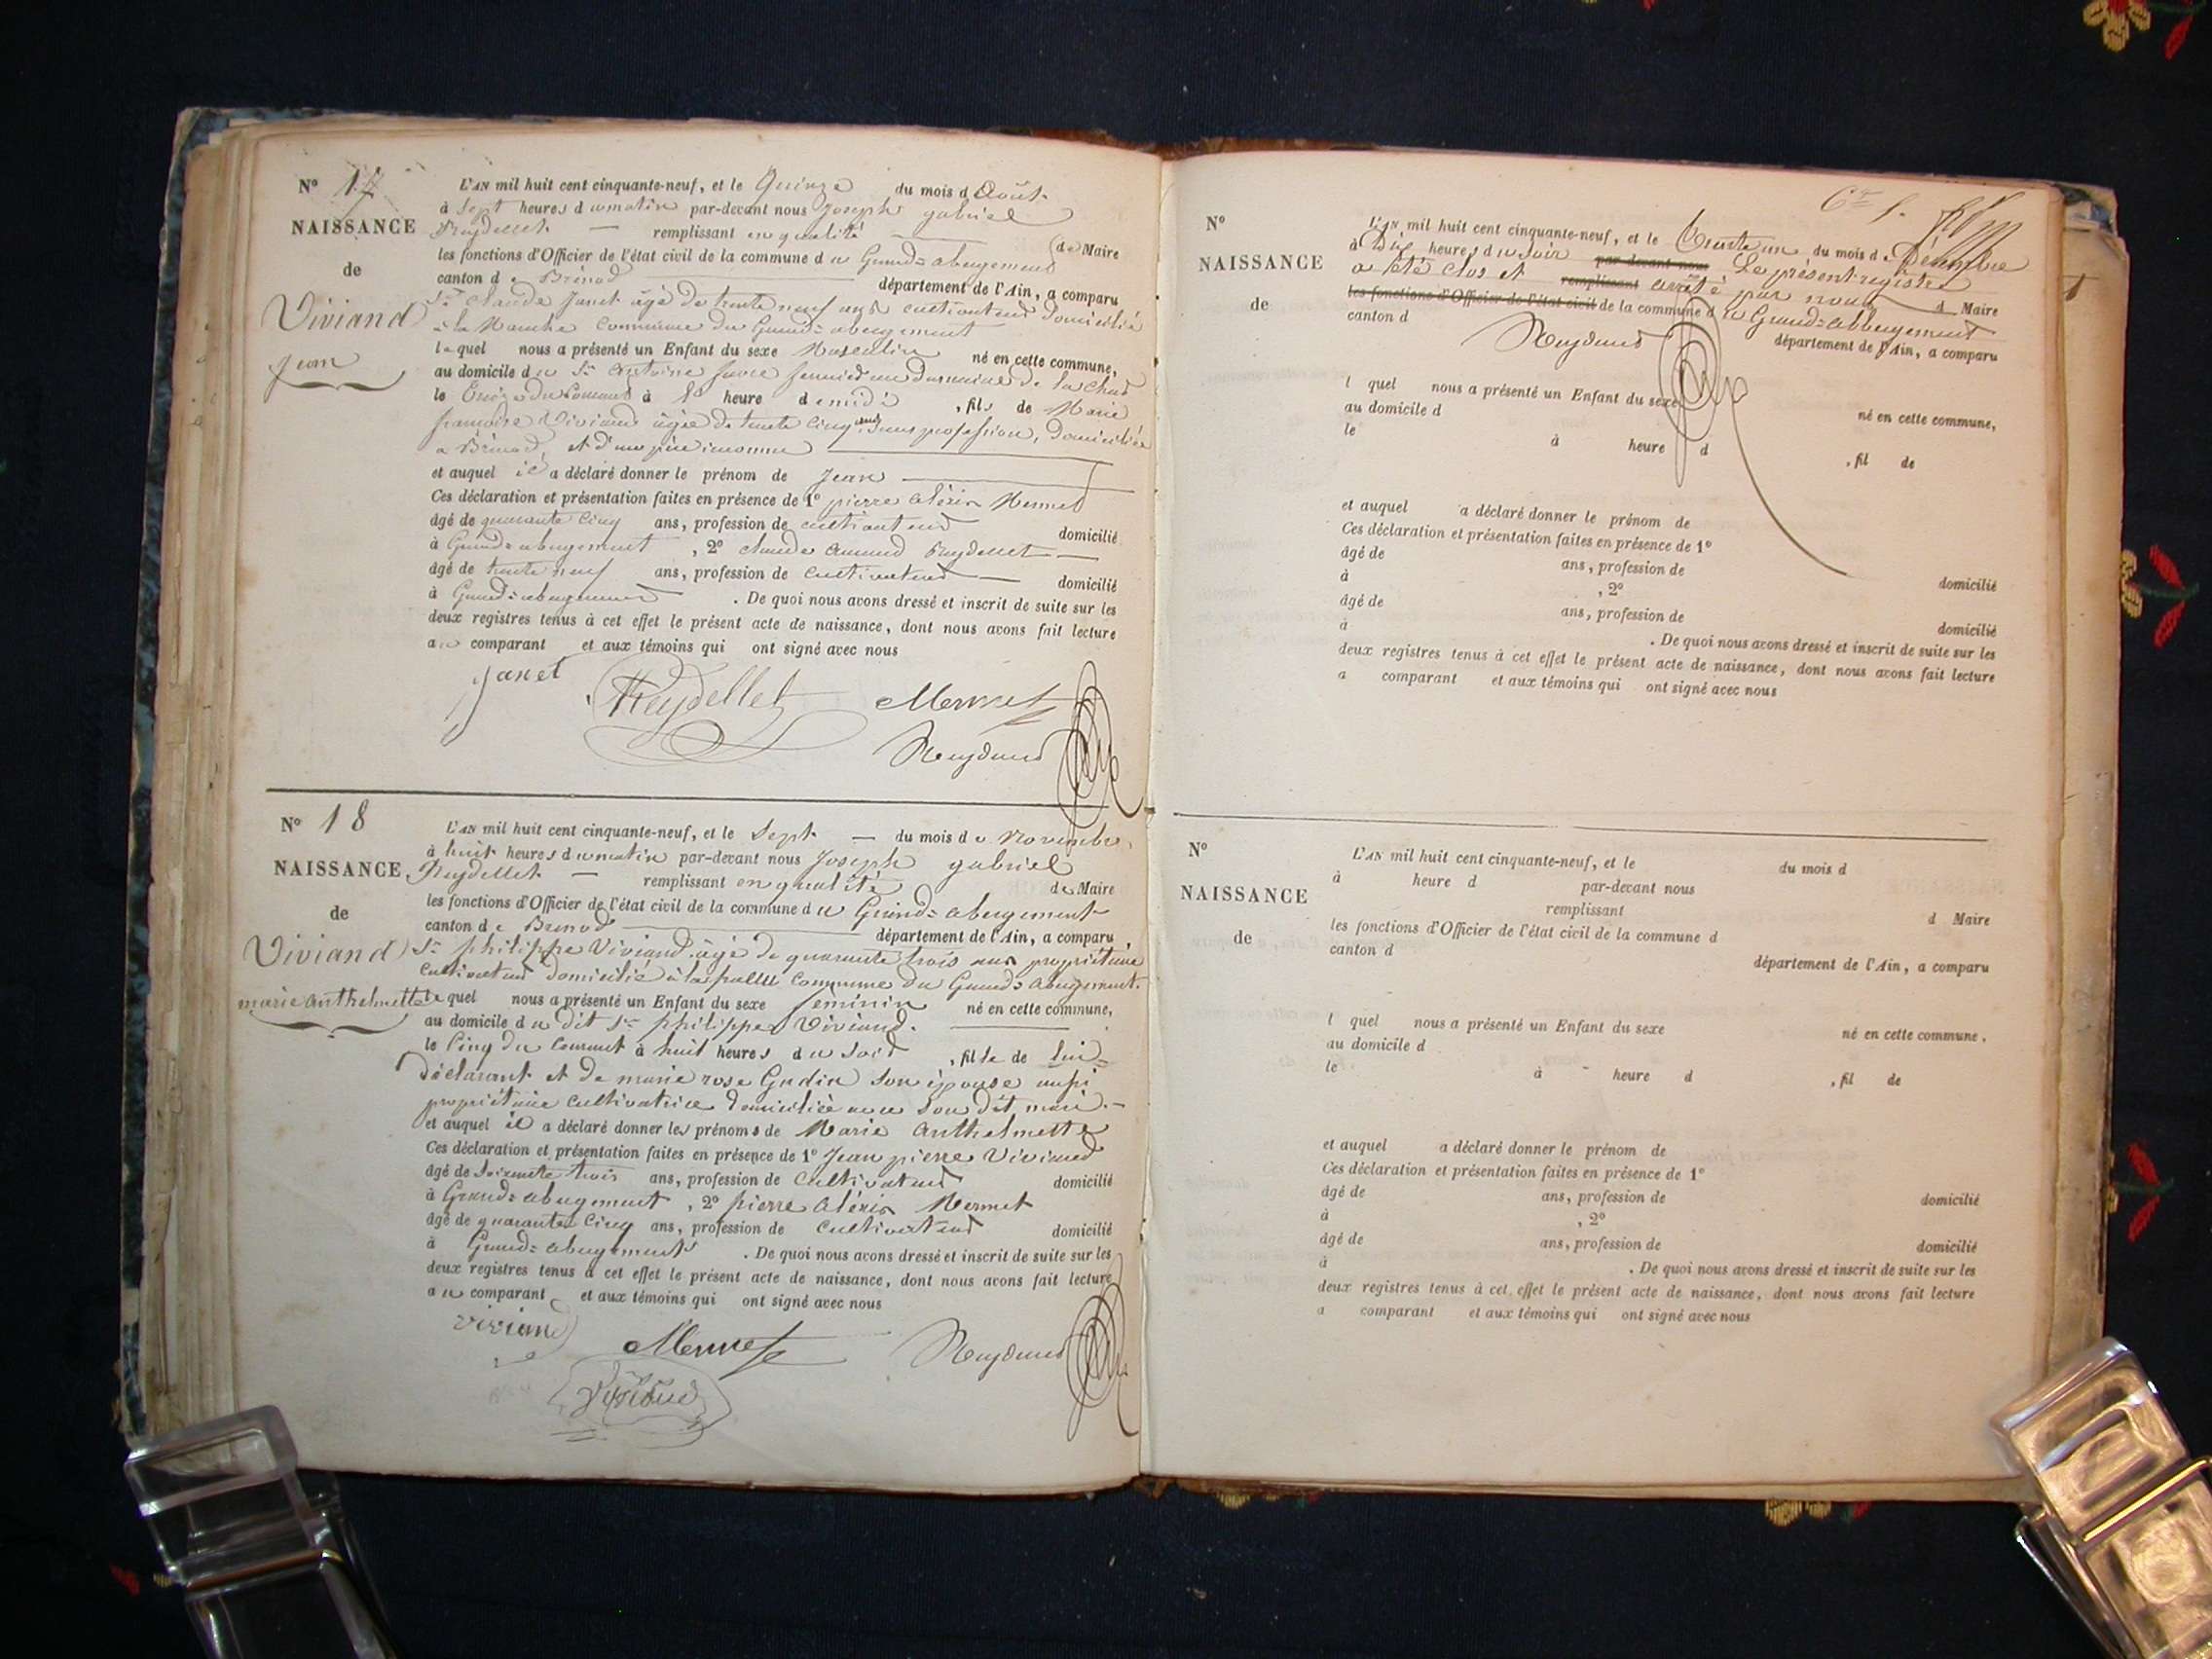 N° 17
NAISSANCE
de
Viviand
Jean
L'AN mil huit cent cinquante-neuf, et le Quinze du mois d Août
à Sept heures du matin par-devant nous Joseph gabriel
Reydellet — remplissant en qualité de Maire
les fonctions d'Officier de l'état civil de la commune du Grand=abergement
canton de Brénod département de l'Ain, a comparu
Sr Claude Janet âgé de trente neuf ans cultivateur domicilié
à la Manche Commune du Grand=abergement
lequel nous a présenté un Enfant du sexe Masculin né en cette commune,
au domicile du Sr antoine favre fermier au domaine de la
le Treize du Courant à heure demidi , fils de Marie
françoise Viviand âgée de trente cinq ans sans profession, domiciliée
a Brénod, et d'un père inconnu
et auquel il a déclaré donner le prénom de Jean
Ces déclaration et présentation faites en présence de 1° pierre aléxis Mermet
âgé de quarante Cinq ans, profession de cultivateur domicilié
à Grand=abergement , 2° claude Reydellet —
âgé de trente neuf ans, profession de Cultivateur — domicilié
à Grand=abergement . De quoi nous avons dressé et inscrit de suite sur les
deux registres tenus à cet effet le présent acte de naissance, dont nous avons fait lecture
au comparant et aux témoins qui ont signé avec nous
Janet Reydellet Mermet
N° 18
NAISSANCE
de
Viviand
marie anthelmette
L'AN mil huit cent cinquante-neuf, et le Sept — du mois de Novembre,
à huit heures du matin par-devant nous Joseph gabriel
Reydellet — remplissant en qualité de Maire
les fonctions d'Officier de l'état civil de la commune du Grand=abergement
canton de Brénod département de l'Ain, a comparu,
Sr philippe Viviand âgé de quarante trois ans propriétaire
Cultivateur domicilié à Commune du Grand=abergement.
lequel nous a présenté un Enfant du sexe féminin né en cette commune,
au domicile du dit Sr philippe Viviand.
le Cinq du Courant à huit heures du Soir , fille de lui=
déclarant et de marie rose Gudin son épouse aussi
propriétaire Cultivatrice domiciliée avec Son dit mari. —
et auquel il a déclaré donner les prénoms de Marie anthelmette
Ces déclaration et présentation faites en présence de 1° Jean pierre Viviand
âgé de Soixante trois ans, profession de Cultivateur domicilié
à Grand=abergement , 2° pierre aléxis Mermet
âgé de quarante Cinq ans, profession de Cultivateur domicilié
à Grand=abergement . De quoi nous avons dressé et inscrit de suite sur les
deux registres tenus à cet effet le présent acte de naissance, dont nous avons fait lecture
au comparant et aux témoins qui ont signé avec nous
viviand
Mermet
Viviand
N°
NAISSANCE
de
L'AN mil huit cent cinquante-neuf, et le trente un du mois de Décembre
à Dix heures du Soir par-devant nous Le présent registre
a été clos et remplissant arrêté par nous d Maire
les fonctions d'Officier de l'état civil de la commune du Grand=abbergement
canton d département de l'Ain, a comparu
l quel nous a présenté un Enfant du sexe né en cette commune,
au domicile d
le à heure d , fil de
et auquel a déclaré donner le prénom de
Ces déclaration et présentation faites en présence de 1°
âgé de ans, profession de domicilié
à , 2°
âgé de ans, profession de domicilié
à . De quoi nous avons dressé et inscrit de suite sur les
deux registres tenus à cet effet le présent acte de naissance, dont nous avons fait lecture
a comparant et aux témoins qui ont signé avec nous
N°
NAISSANCE
de
L'AN mil huit cent cinquante-neuf, et le du mois d
à heure d par-devant nous
remplissant d Maire
les fonctions d'Officier de l'état civil de la commune d
canton d département de l'Ain, a comparu
l quel nous a présenté un Enfant du sexe né en cette commune,
au domicile d
le à heure d , fil de
et auquel a déclaré donner le prénom de
Ces déclaration et présentation faites en présence de 1°
âgé de ans, profession de domicilié
à , 2°
âgé de ans, profession de domicilié
à . De quoi nous avons dressé et inscrit de suite sur les
deux registres tenus à cet effet le présent acte de naissance, dont nous avons fait lecture
a comparant et aux témoins qui ont signé avec nous